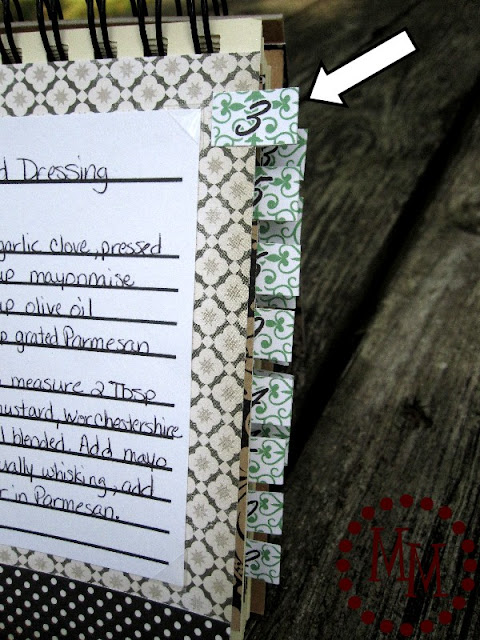 3
d Dressing
garlic clove, pressed
up mayonmise
up olive oil
p grated Parmesan
measure 2 Tbsp
mustard, Worchestershire
l blended. Add mayo
ually whisking, add
r in Parmesan.
MM